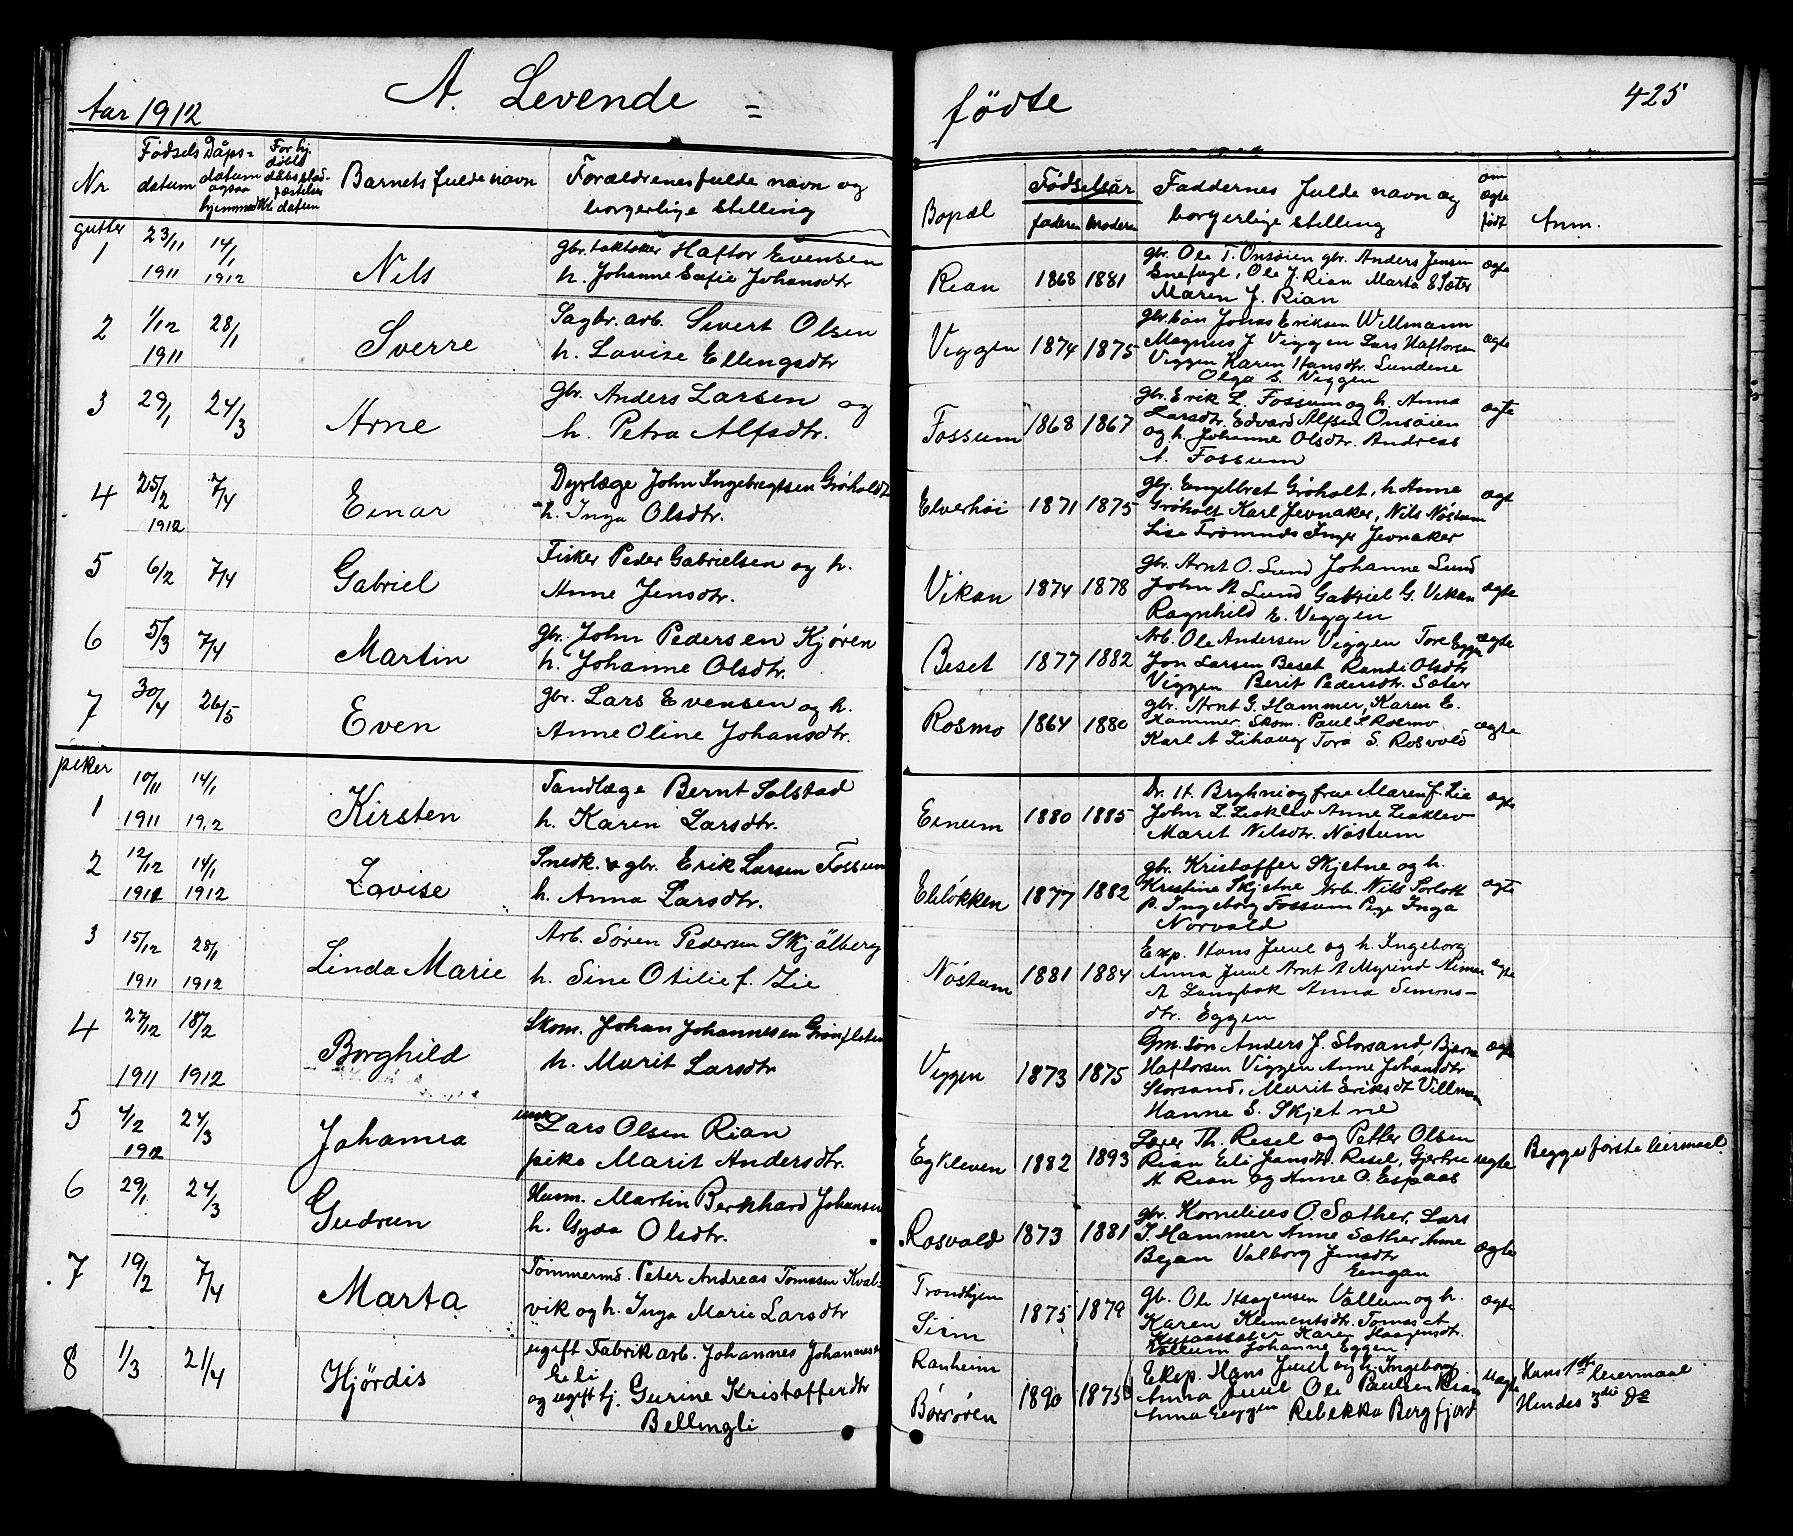 A. Levende = fødte
425
Aar 1912
Nr
Fødsels datum
Dåps= datum ogsaa hjemmed.
For hj. døbte datum
Barnets fulde navn
Forældrenes fulde navn og borgerlige stilling
Bopæl
Fødselsår
faderen
moderen
Faddernes fulde navn og borgerlige stilling
om ægte født
Anm.
gutter
1 23/11 1911 14/1 1912 Nils
gbr. Haftor Evensen
h. Johanne Johansdtr
Rian 1868 1881
gbr. Ole T. Onsøien gbr. Anders Jensen
Snefugl, Ole J. Rian Marta E Sæter
Maren J. Rian
ægte
2 1/12 1911 28/1 Sverre
Sagbr. arb. Sivert Olsen
h. Lovise Ellingsdtr
Viggen 1874 1875
Jonas Eriksen Willmann
Magnus J Viggen Lars Haftorsen
Viggen Karen Hansdtr. Lundene
Olga S. Viggen
ægte
3 29/1 24/3 Arne
gbr. Anders Larsen og
h. Petra Alfsdtr.
Fossum 1868 1867
gbr. Erik L. Fossum og h. Anna
Larsdtr. Edvard Alfsen Onsøien
og h. Johanne Olsdtr. Andreas
A. Fossum
ægte
4 25/2 1912 7/4 Einar
Dyrlæge John Ingebregtsen Grøholdt
h. Inga Olsdtr.
Elverhøi 1871 1875
gbr. Engelbret Grøholt, h. Anne
Grøholt Karl Jevnaker, Nils Nøstum
Lise Inger Jevnaker
ægt
5 6/2 7/4 Gabriel
Fisker Peder Gabrielsen og h.
Anne Jensdtr.
Vikan 1874 1878
gbr. Arnt O. Lund Johanne Lund
John A Lund Gabriel G. Vikan
Ragnhild E. Viggen
ægte
6 5/3 7/4 Martin
gbr. John Pedersen Kjøren
h. Johanne Olsdtr.
Beset 1877 1882
Arb. Ole Andersen Viggen Tore Eggen
Jon Larsen Beset Randi Olsdtr
Viggen Berit Pedersdtr. Sæter
ægte
7 30/4 26/5 Even
gbr. Lars Evensen og h.
Anne Oline Johansdtr.
Rosmo 1864 1880
gbr. Arnt G. Hammer, Karen E.
Hammer. Skom. Paul S Rosmo
Karl A Tora S. Rosvold
ægte
piker
1 10/11 1911 14/1 1912 Kirsten
Tandlæge Bernt Solstad
h. Karen Larsdtr.
Einum 1880 1885
Dr. H. Bryhni og frue Maren f. Lie
John L Leoklev Anne Leoklev
Marit Nilsdtr. Nøstum
ægte
2 12/12 1911 14/1 1912 Lovise
Snedk. & gbr. Erik Larsen Fossum
h. Anna Larsdtr.
1877 1882
gbr. Kristoffer Skjetne og h.
Kristine Skjetne Arb. Nils
P. Ingeborg Fossum Pige Inga
Norvald
ægte
3 15/12 1911 28/1 1912 Linda Marie
Arb. Søren Pedersen Skjålberg
h. Sine Otilie f. Lie
Nøstum 1881 1884
Exp. Hans Juul og h. Ingeborg
Anna Juul Arnt A Myrind
A Langbak Anna Simons-
dtr. Eggen
ægte
4 27/12 1911 18/2 1912 Borghild
Skom. Johan Johannesen Grønflaten
h. Marit Larsdtr
Viggen 1873 1875
Gm. søn Anders J. Storsand, Bjarne
Haftorsen Viggen Anne Johansdtr
Storsand, Marit Eriksdt Villman
Hanne S. Skjetne
ægte
5 4/2 1912 24/3 Johanna
Lars Olsen Rian
pike Marit Andersdtr.
Egkleven 1882 1893
Lærer Th. Resel og Petter Olsen
Rian Eli Jensdtr. Resel, Gjertrue
A Rian og Anne O. Espaas
uægte
Begges første leiermaal.
6 29/1 24/3 Gudrun
Husm. Martin Bernhard Johansen
h. Gyda Olsdtr.
Rosvold 1873 1881
gbr. Kornelius O. Sæther, Lars
J. Hammer Anne Sæther Anne
Byan Valborg Jensdtr
Eengan
ægte
7 19/2 7/4 Marta
Tømmermd. Peter Andreas Tomasen Kval-
vik og h. Inga Marie Larsdtr
Trondhjem 1875 1879
gb. Ole Haagensen Vollum og h.
Karen Klementsdtr. Tomas A
Karen Haagensdtr.
Vollum Johanne Eggen
ægte
8 1/3 21/4 Hjördis
ugift Fabrikarb. Johannes Johannesen
Eli
og ugift tj. Gurine Kristofferdtr
Bellingli
Ranheim
Børsøren 1890 1875
Eksp. Hans Juul og h. Ingeborg
Anna Juul Ole Paulsen Rian
Anna Eeggen Rebekka Bergfjord
uægte
Hans 1ste leiermaal
Hendes 3die Do